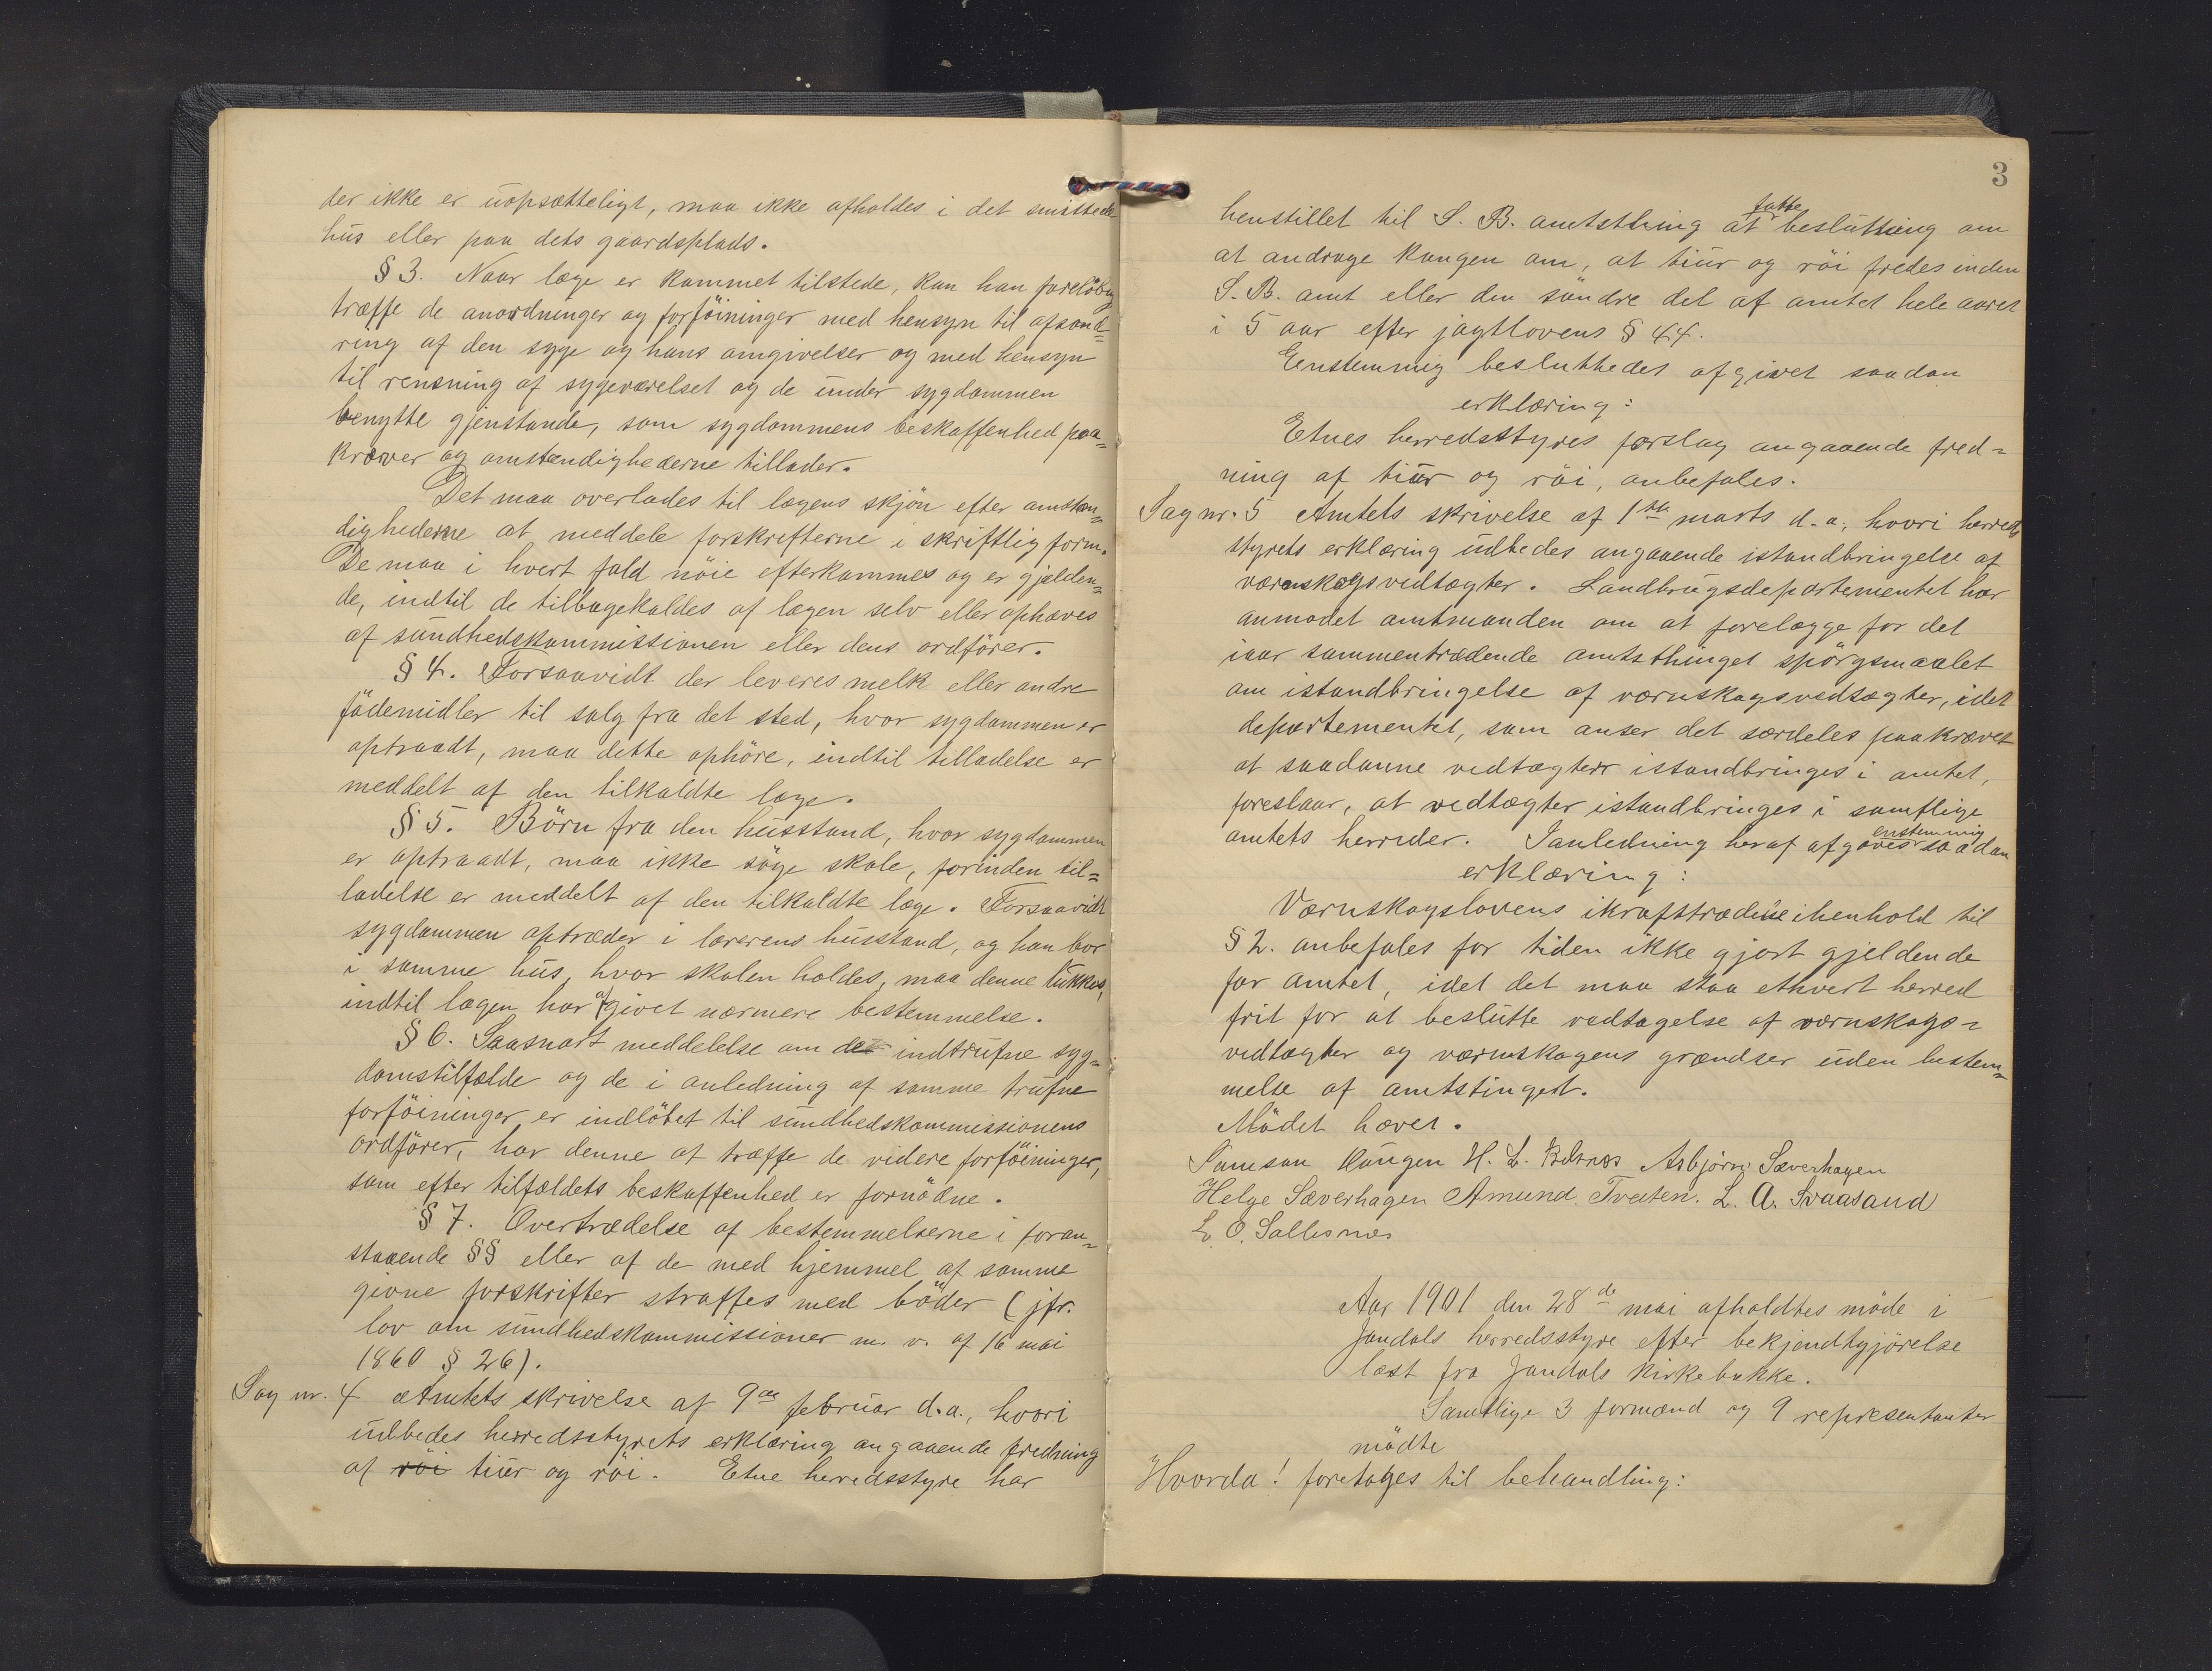 der ikke er uopsætteligt, maa ikke afholdes i det smittede
hus eller paa dets gaardsplads.
§ 3. Naar læge er kommet tilstede, kan han foreløbig
træffe de anordninger og forføininger med hensyn til afsond=
ring af den syge og hans omgivelser og med hensyn
til rensning af sygeværelset og de under sygdommen
benytte gjenstande, som sygdommens beskaffenhed paa=
kræver og omstændighederne tillader.
Det maa overlades til lægens skjøn efter omstæn=
dighederne at meddele forskrifterne i skriftlig form.
De maa i hvert fald nöie efterkommes og er gjælden=
de, indtil de tilbagekaldes af lægen selv eller ophæves
af sundhedskommissionen eller dens ordförer.
§ 4. Forsaavidt der leveres melk eller andre
födemidler til salg fra det sted, hvor sygdommen er
optraadt, maa dette ophöre, indtil tilladelse er
meddelt af den tilkaldte læge.
§ 5. Börn fra den husstand, hvor sygdommen
er optraadt, maa ikke söge skole, forinden til=
ladelse er meddelt af den tilkaldte læge. Forsaavidt
sygdommen optræder i lærerens husstand, og han bor
i samme hus, hvor skolen holdes, maa denne lukkes,
indtil lægen har afgivet nærmere bestemmelse.
§ 6. Saasnart meddelelse om de indtrufne syg=
domstilfælde og de i anledning af samme trufne
forföininger er indlöbet til sundhedskommissionens
ordförer, har denne at træffe de videre forföininger,
som efter tilfældets beskaffenhed er fornödne.
§ 7. Overtrædelse af bestemmelserne i foran=
staaende §§ eller af de med hjemmel af samme
givne forskrifter straffes med böder (jfr.
lov om sundhedskommissioner m. v. af 16 mai
1860 § 26).
Sag nr. 4 Amtets skrivelse af 9de februar d.a., hvori
udbedes herredsstyrets erklæring angaaende fredning
af röi tiur og röi. Etne herredsstyre har
3
henstillet til S. B. amtsthing at fatte beslutning om
at andrage kongen om, at tiur og röi fredes inden
S. B. amt eller den søndre del af amtet hele aaret
i 5 aar efter jagtlovens § 44.
Eenstemmig besluttedes afgivet saadan
erklæring:
Etnes herredsstyres forslag angaaende fred=
ning af tiur og röi, anbefales.
Sag nr. 5 Amtets skrivelse af 1ste marts d.a., hvori herreds
styrets erklæring udbedes angaaende istandbringelse af
værnskogsvedtægter. Landbrugsdepartementet har
anmodet amtmanden om at forelægge for det
iaar sammentrædende amtsthinget spörgsmaalet
om istandbringelse af værnskogsvedtægter, idet
departementet, som anser det særdeles paakrævet
at saadanne vedtægter istandbringes i amtet,
foreslaar, at vedtægter istandbringes i samtlige
amtets herreder. I anledning heraf afgaves enstemmig saadan
erklæring:
Værnskogslovens ikrafttrædelse ihenhold til
§ 2. anbefales for tiden ikke gjort gjeldende
for amtet, idet det maa staa ethvert herred
frit for at beslutte vedtagelse af værnskogs=
vedtægter og værnskogens grændser uden bestem=
melse af amtstinget.
Mödet hævet.
Samson Haugen H. L. Belsnes Asbjørn Sæverhagen
Helge Sæverhagen Amund Tveiten. L. A. Svaasand
L. O. Sallesnæs
Aar 1901 den 28de mai afholdtes møde i
Jondals herredsstyre efter bekjendtgjörelse
læst fra Jondals kirkebakke.
Samtlige 3 formænd og 9 repræsentanter
mödte
Hvorda! foretoges til behandling: